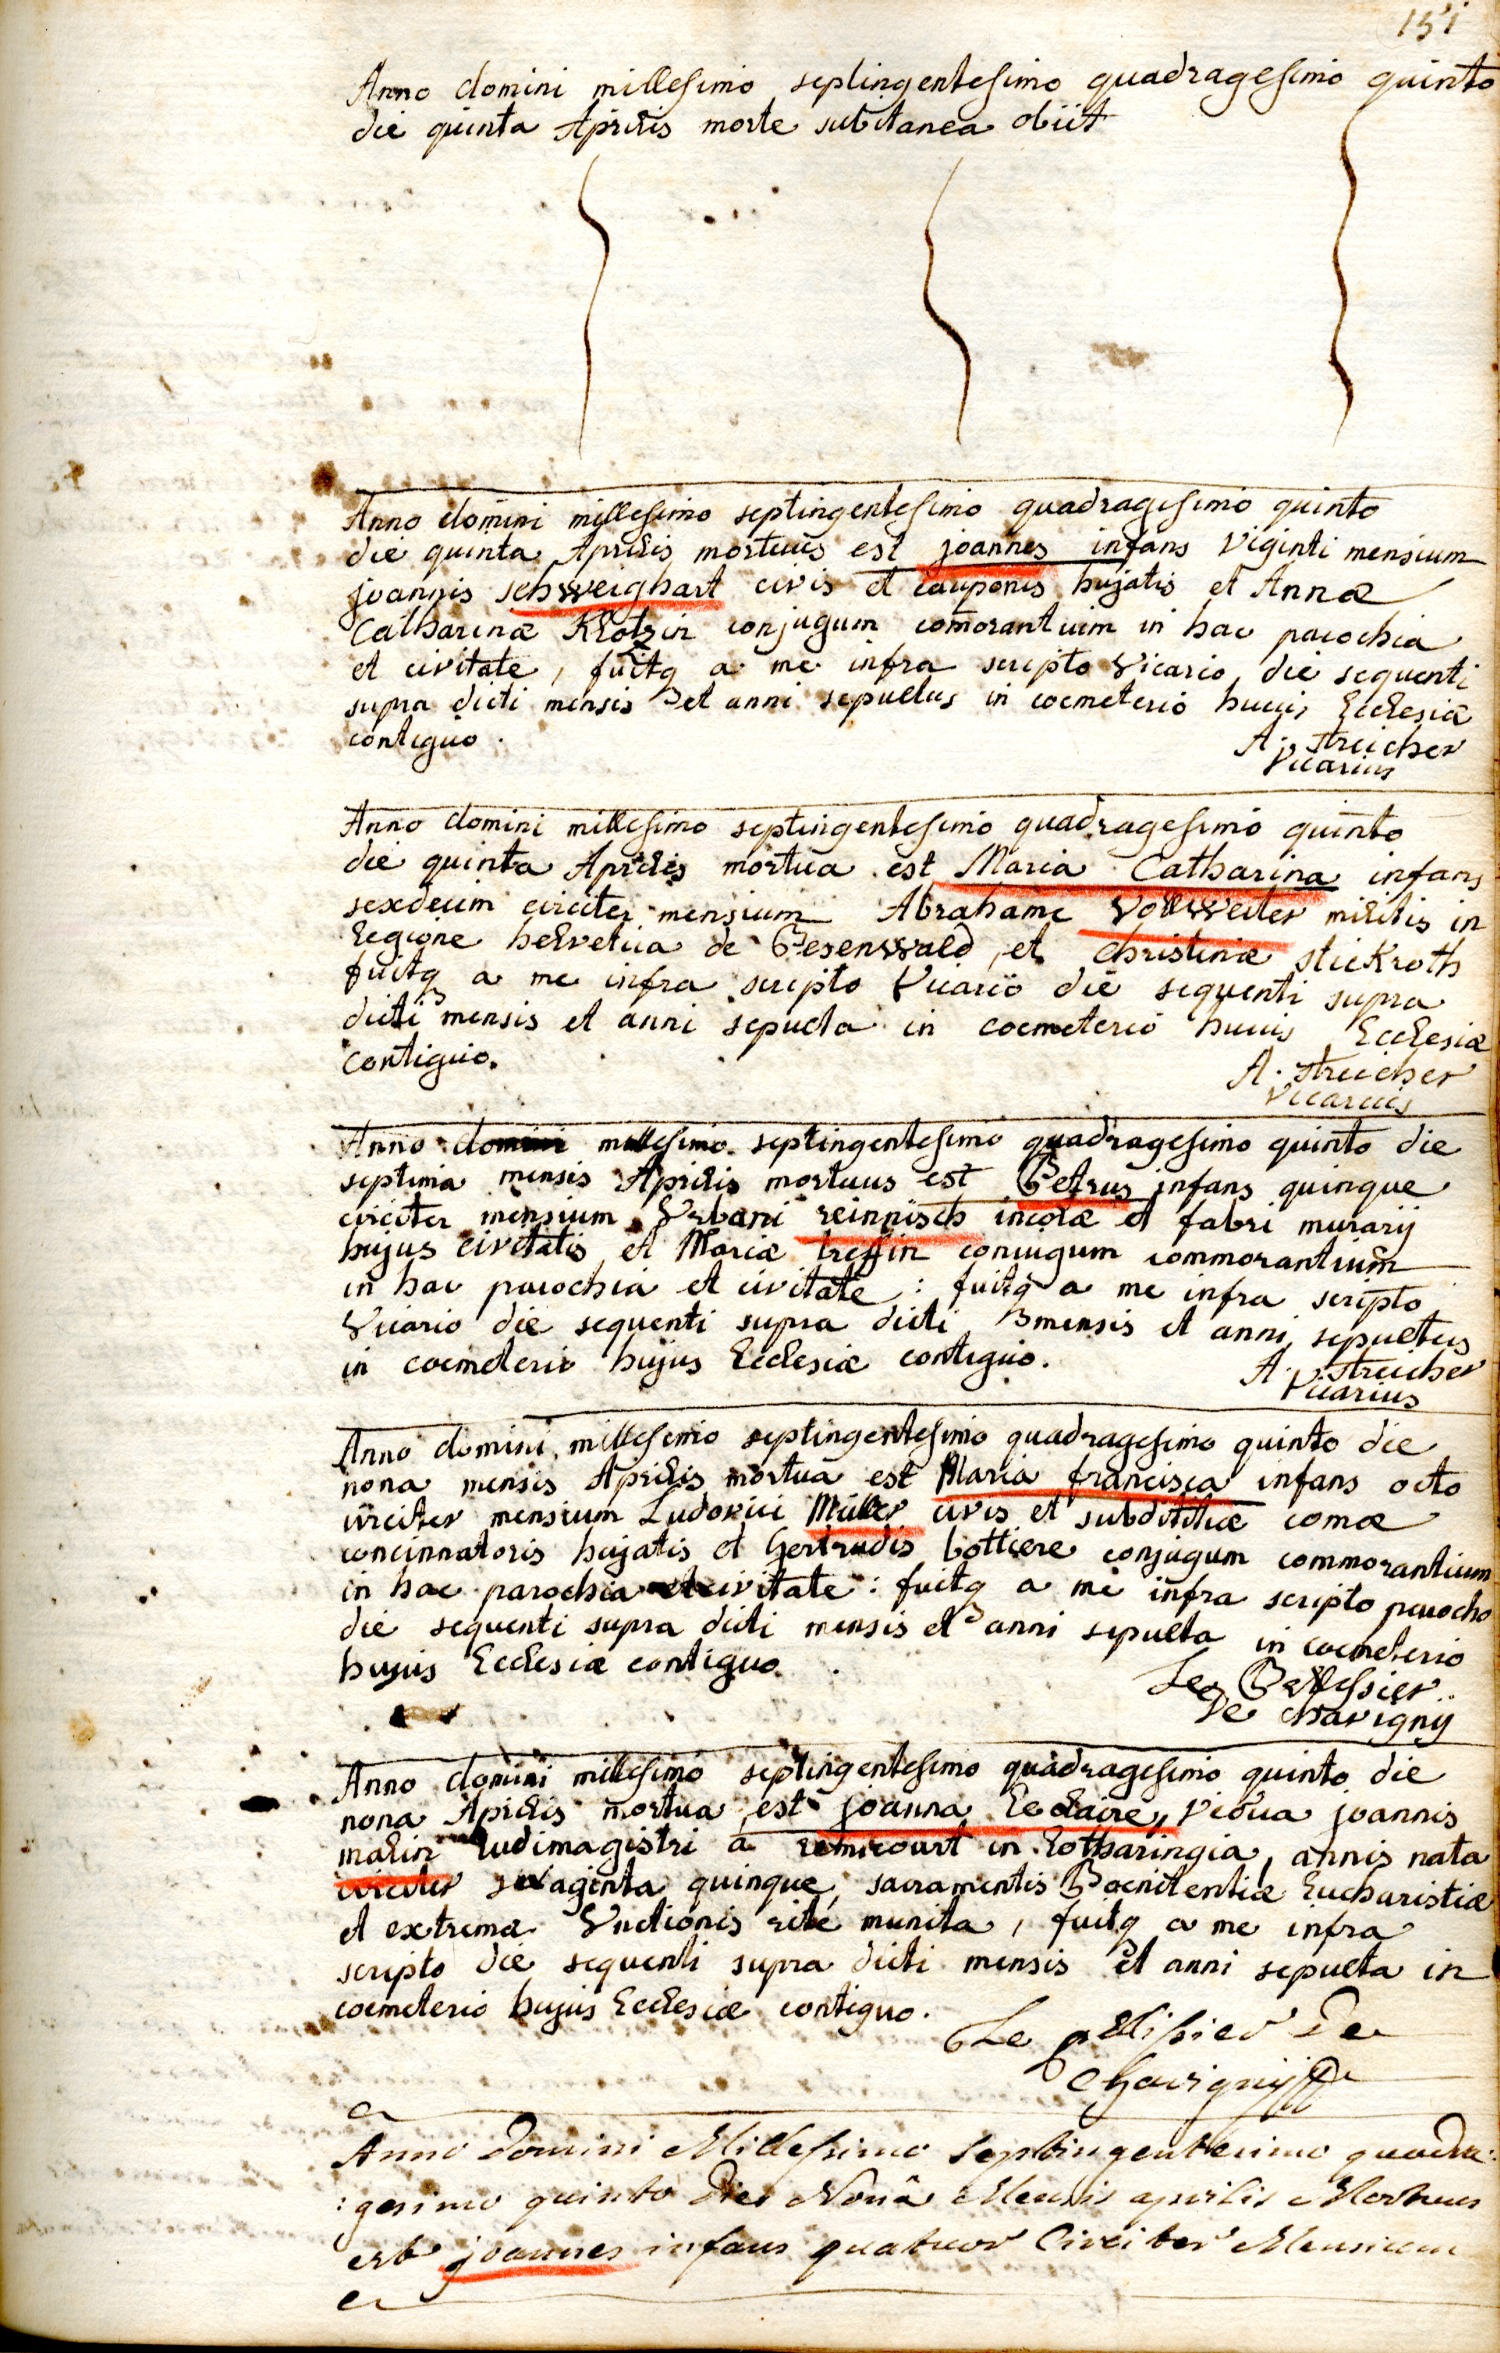 151
Anno domini millesimo septingentesimo quadragesimo quinto
die quinta Aprilis morte subitanea obiit
Anno domini millesimo septingentesimo quadragesimo quinto
die quinta Aprilis mortuus est joannes infans viginti mensium
joannis schweighart civis et cauponis hujatis et Annæ
Catharinæ Klotzin conjugum com̄orantium in hac parochia
et civitate, fuitq a me infra scripto Vicario die sequenti
supra dicti mensis et anni sepultus in coemeterio huius Ecclesiæ
contiguo.
A. streicher
Vicarius
Anno domini millesimo septingentesimo quadragesimo quinto
die quinta Aprilis mortua est Maria Catharina infans
sexdecim circiter mensium Abrahami Vollweiler militis in
legione helvetica de Besenwald, et christinæ stickroth
fuitq a me infra scripto Vicario die sequenti supra
dicti mensis et anni sepulta in coemeterio huius Ecclesiæ
contiguo.
A. streicher
Vicarius
Anno domini millesimo septingentesimo quadragesimo quinto die
septima mensis Aprilis mortuus est Petrus infans quinque
circiter mensium Urbani reinnisch incolæ et fabri murarij
hujus civitatis et Mariæ treffin coniugum commorantium
in hac parochia et civitate : fuitq a me infra scripto
Vicario die sequenti supra dicti mensis et anni sepultus
in coemeterio hujus Ecclesiæ contiguo.
A. streicher
Vicarius
Anno domini millesimo septingentesimo quadragesimo quinto die
nona mensis Aprilis mortua est Maria francisca infans octo
circiter mensium Ludovici Müller civis et subdititiæ comæ
concinnatoris hujatis et Gertrudis bottiere conjugum commorantium
in hac parochia et civitate : fuitq a me infra scripto parocho
die sequenti supra dicti mensis et anni sepulta in coemeterio
hujus Ecclesiæ contiguo.
Le Pellessier
De chavignij
Anno domini millesimo septingentesimo quadragesimo quinto die
nona Aprilis mortua est joanna Leclaire, vidua joannis
malin ludimagistri à remicourt in Lotharingia, annis nata
circiter sexaginta quinque, sacramentis Poenitentiæ Eucharistiæ
et extremæ Unctionis rite munita, fuitq a me infra
scripto die sequenti supra dicti mensis et anni sepulta in
coemeterio hujus Ecclesiæ contiguo.
Le pelissier De
Chavignij
Anno Domini Millessimo septingentesimo quadra:
:gesimo quinto Die Nonâ Mensis aprilis Mortuus
est joannes infans quatuor Circiter Mensium